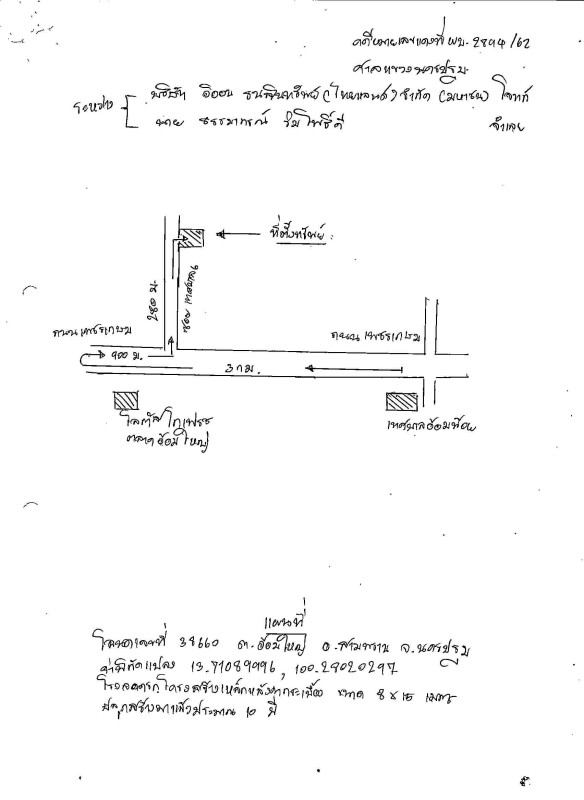 คดีหมายเลขแดงที่ ผบ. 2894/62
ศาลแขวงนครปฐม
ระหว่าง
บริษัท อิออน ธนสินทรัพย์ (ไทยแลนด์) จำกัด (มหาชน) โจทก์
นาย ธรรมาภรณ์ ริมโพธิ์ดี จำเลย
ที่ตั้งทรัพย์
280 ม.
ซอย เทศบาล 6
ถนนเพชรเกษม
ถนนเพชรเกษม
900 ม.
3 กม.
โลตัสโกเฟรช
ตลาดอ้อมใหญ่
เทศบาลอ้อมน้อย
แผนที่
โฉนดเลขที่ 38660 ต.อ้อมใหญ่ อ.สามพราน จ.นครปฐม
ค่าพิกัดแปลง 13.71089996, 100.29020297
โรงจอดรถ โครงสร้างเหล็กหลังคากระเบื้อง ขนาด 8 x 15 เมตร
ปลูกสร้างมาแล้วประมาณ 10 ปี